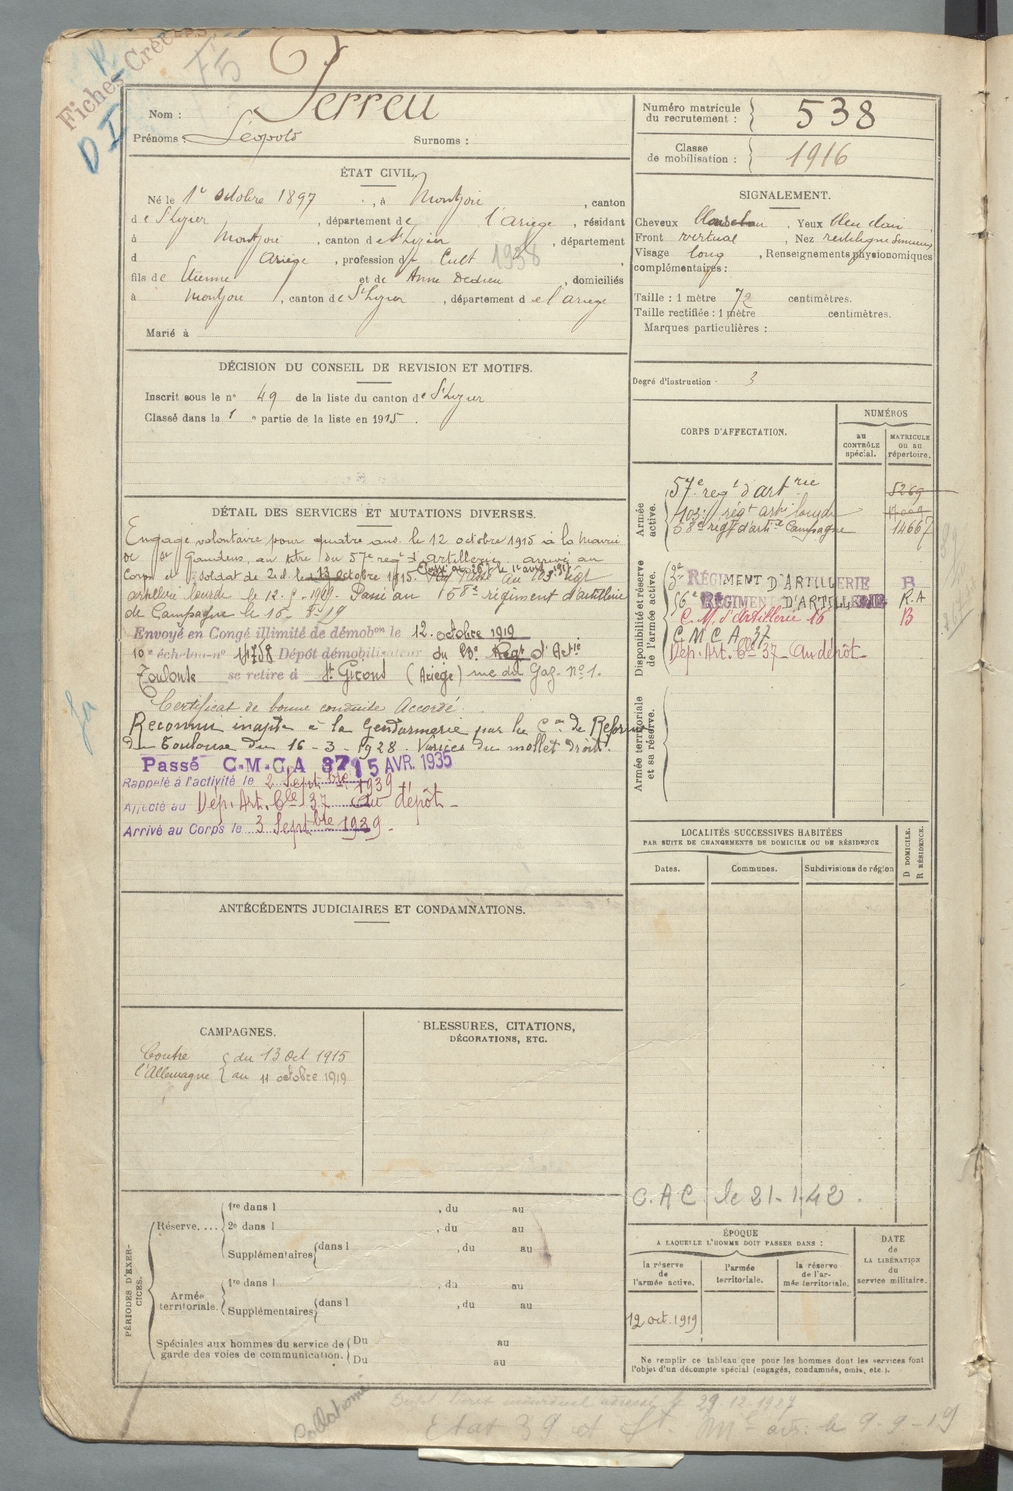 Fiches Créées
R
75
D I
Nom : Ferreu
Prénoms : Léopold Surnoms :
Numéro matricule du recrutement : 538
Classe de mobilisation : 1916
ÉTAT CIVIL.
Né le 1er octobre 1897, à Montjoi, canton
de St Lizier, département de l'Ariège, résidant
à Montjoi, canton de St Lizier, département
d Ariège, profession de Cult 1938
fils de Etienne et de Anne Dedieu, domiciliés
à Montjoi, canton de St Lizier, département de l'Ariège
Marié à
SIGNALEMENT.
Cheveux Yeux bleu clair
Front vertical, Nez rectiligne
Visage long, Renseignements physionomiques
complémentaires :
Taille : 1 mètre 72 centimètres.
Taille rectifiée : 1 mètre centimètres.
Marques particulières :
Degré d'instruction : 3
DÉCISION DU CONSEIL DE REVISION ET MOTIFS.
Inscrit sous le n° 49 de la liste du canton de St Lizier
Classé dans la 1e partie de la liste en 1915.
DÉTAIL DES SERVICES ET MUTATIONS DIVERSES.
Engagé volontaire pour quatre ans le 12 octobre 1915 à la mairie
de St Gaudens, au titre du 57e régt d'artillerie, arrivé au
corps et soldat de 2e cl. le 13 octobre 1915. Passé au 103e régt
artillerie lourde le 12 Passé au 58e régiment d'artillerie
de Campagne le 15
Envoyé en Congé illimité de démobon le 12 octobre 1919
10e échelon n° 14758 Dépôt démobilisateur du Régt d'Artie
Toulouse se retire à St Girons (Ariège) rue du Gaz n° 1.
Certificat de bonne conduite Accordé.
Reconnu inapte à la Gendarmerie par la Con de Réforme
de Toulouse du 16-3-1928. Varices du mollet droit.
Passé C.M.C.A 37 15 AVR. 1935
Rappelé à l'activité le 2 Septbre 1939
Affecté au Dép. Art. Cle 37 au dépôt
Arrivé au Corps le 3 Septbre 1939.
CORPS D'AFFECTATION.
NUMÉROS
AU CONTRÔLE spécial.
MATRICULE OU AU répertoire.
Armée active.
57e régt d'artrie 5269
103e régt artie lourde
58e régt d'artie Campagne 14667
Disponibilité et réserve de l'armée active.
RÉGIMENT D'ARTILLERIE B
56e RÉGIMENT D'ARTILLERIE R.A
C.M. d'Artillerie 16 B
C M C A 37
Dép. Art. Cle 37 - Au dépôt -
Armée territoriale et sa réserve.
LOCALITÉS SUCCESSIVES HABITÉES
PAR SUITE DE CHANGEMENTS DE DOMICILE OU DE RÉSIDENCE
Dates. Communes. Subdivisions de région
D DOMICILE. R RÉSIDENCE.
C.A.C le 21-1-42.
ANTÉCÉDENTS JUDICIAIRES ET CONDAMNATIONS.
CAMPAGNES.
Contre l'Allemagne
du 13 oct 1915
au 11 octobre 1919
BLESSURES, CITATIONS,
DÉCORATIONS, ETC.
PÉRIODES D'EXERCICES.
Réserve....
1re dans l , du au
2e dans l , du au
Supplémentaires dans l , du au
Armée territoriale.
1re dans l , du au
Supplémentaires dans l , du au
Spéciales aux hommes du service de garde des voies de communication.
Du au
Du au
ÉPOQUE
A LAQUELLE L'HOMME DOIT PASSER DANS :
la réserve de l'armée active.
l'armée territoriale.
la réserve de l'armée territoriale.
DATE de LA LIBÉRATION du service militaire.
12 oct. 1919
Ne remplir ce tableau que pour les hommes dont les services font
l'objet d'un décompte spécial (engagés, condamnés, omis, etc.).
Collationné
livret individuel adressé le 29.12.1927
Etat 39 et le 9-9-19